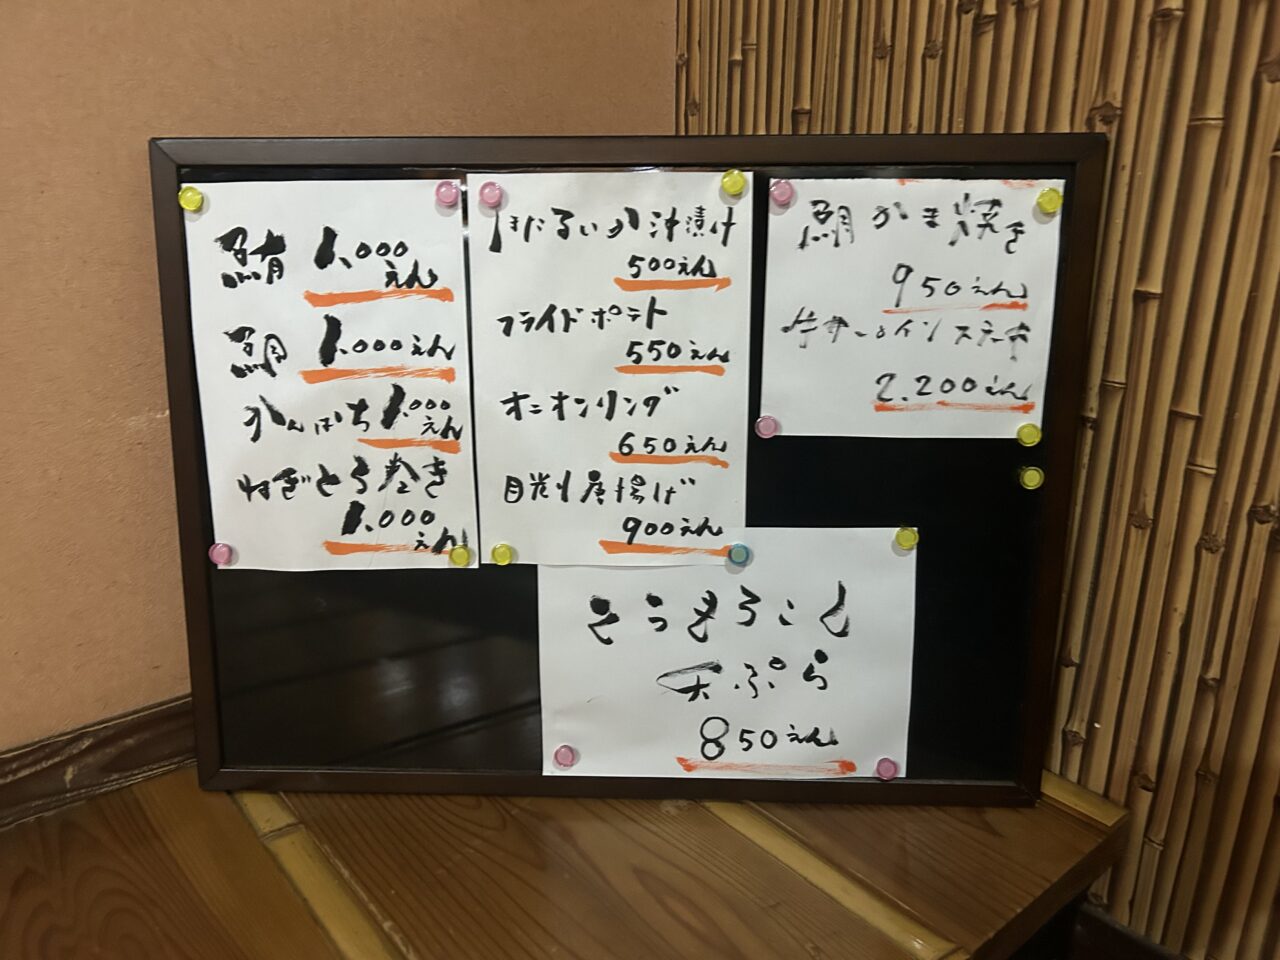 鮪 1,000
えん
鯛 1,000えん
かんぱち 1,000
えん
ねぎとろ巻き
1,000
えん
ほたるいか汁漬け
500えん
フライドポテト
550えん
オニオンリング
650えん
目光り唐揚げ
900えん
鯛かま焼き
950えん
牛サーロインステーキ
2.200えん
とうもろこし
天ぷら
850えん